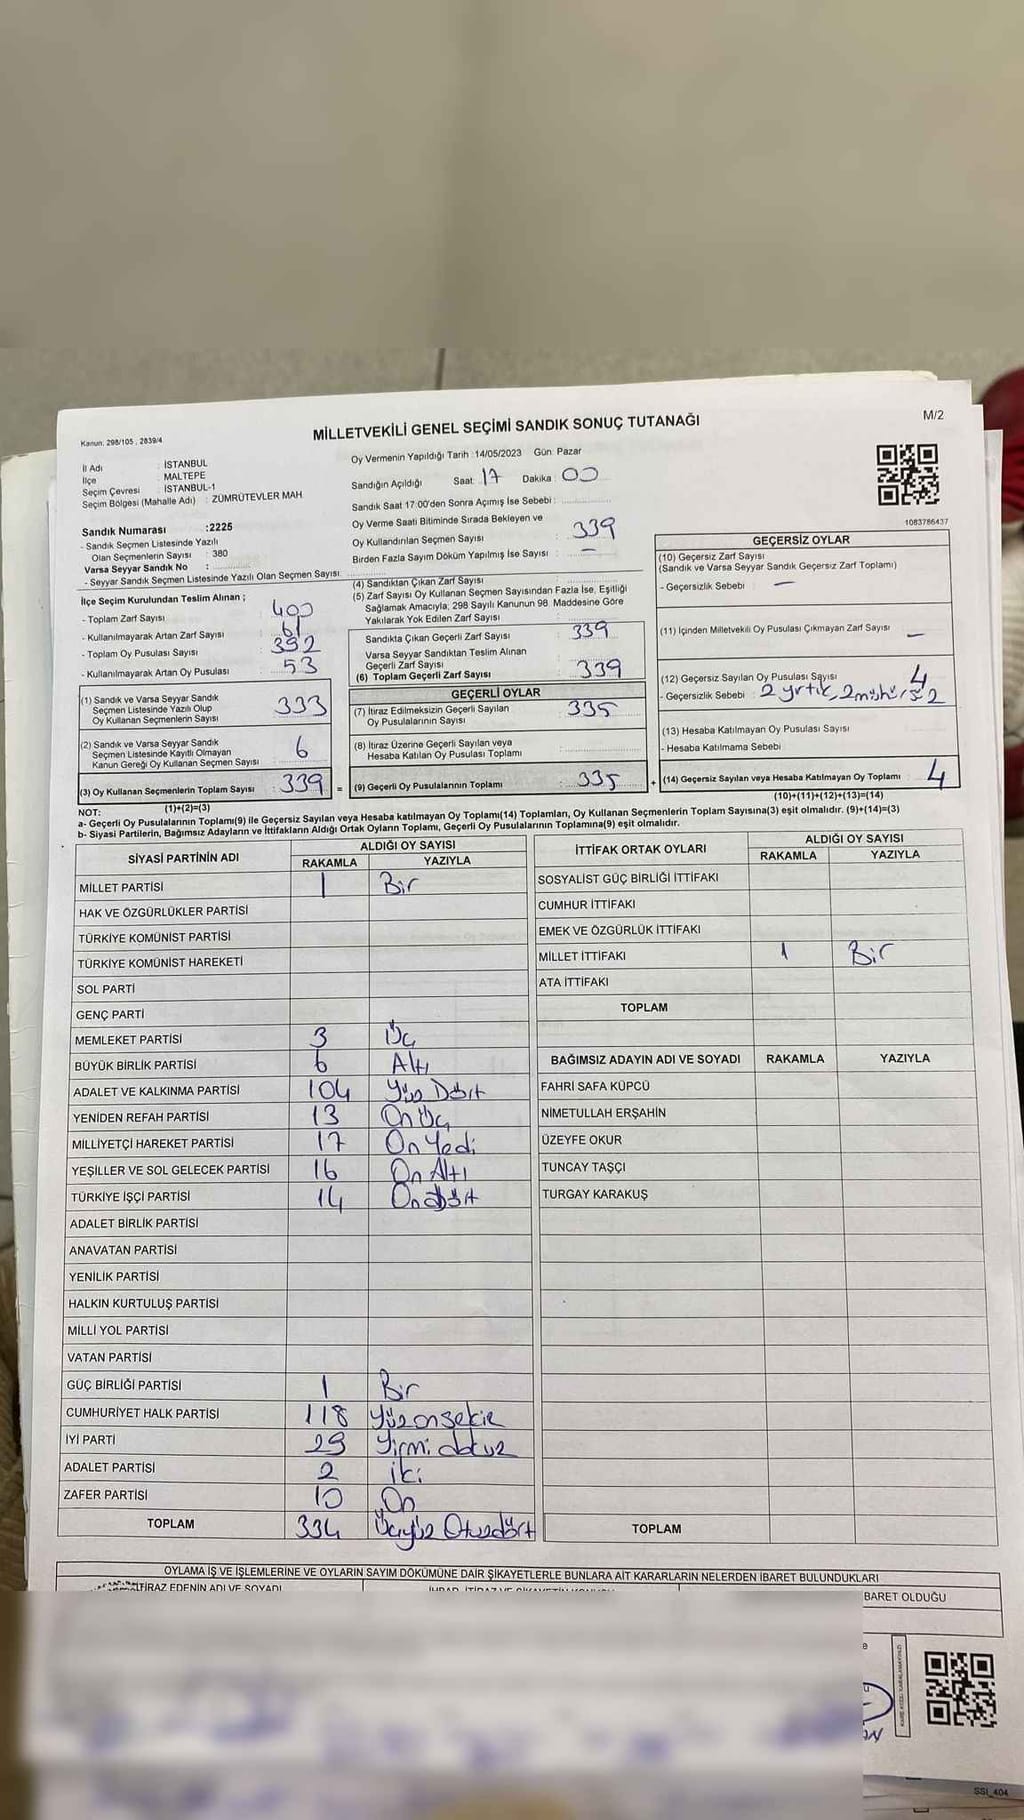 M/2
Kanun: 298/105 , 2839/4
MİLLETVEKİLİ GENEL SEÇİMİ SANDIK SONUÇ TUTANAĞI
İl Adı : İSTANBUL
İlçe : MALTEPE
Seçim Çevresi : İSTANBUL-1
Seçim Bölgesi (Mahalle Adı) : ZÜMRÜTEVLER MAH
Sandık Numarası :2225
- Sandık Seçmen Listesinde Yazılı
Olan Seçmenlerin Sayısı : 380
Varsa Seyyar Sandık No :
- Seyyar Sandık Seçmen Listesinde Yazılı Olan Seçmen Sayısı:
Oy Vermenin Yapıldığı Tarih :14/05/2023 Gün: Pazar
Sandığın Açıldığı Saat: 17 Dakika: 00
Sandık Saat 17:00'den Sonra Açımış İse Sebebi :
Oy Verme Saati Bitiminde Sırada Bekleyen ve
Oy Kullandırılan Seçmen Sayısı : 339
Birden Fazla Sayım Döküm Yapılmış İse Sayısı : –
1083786437
İlçe Seçim Kurulundan Teslim Alınan ;
- Toplam Zarf Sayısı : 400
- Kullanılmayarak Artan Zarf Sayısı : 61
- Toplam Oy Pusulası Sayısı : 392
- Kullanılmayarak Artan Oy Pusulası : 53
(1) Sandık ve Varsa Seyyar Sandık
Seçmen Listesinde Yazılı Olup
Oy Kullanan Seçmenlerin Sayısı : 333
(2) Sandık ve Varsa Seyyar Sandık
Seçmen Listesinde Kayıtlı Olmayan
Kanun Gereği Oy Kullanan Seçmen Sayısı : 6
(3) Oy Kullanan Seçmenlerin Toplam Sayısı : 339 =
(1)+(2)=(3)
(4) Sandıktan Çıkan Zarf Sayısı
(5) Zarf Sayısı Oy Kullanan Seçmen Sayısından Fazla İse, Eşitliği
Sağlamak Amacıyla; 298 Sayılı Kanunun 98. Maddesine Göre
Yakılarak Yok Edilen Zarf Sayısı
Sandıkta Çıkan Geçerli Zarf Sayısı : 339
Varsa Seyyar Sandıktan Teslim Alınan
Geçerli Zarf Sayısı
(6) Toplam Geçerli Zarf Sayısı : 339
GEÇERLİ OYLAR
(7) İtiraz Edilmeksizin Geçerli Sayılan
Oy Pusulalarının Sayısı : 335
(8) İtiraz Üzerine Geçerli Sayılan veya
Hesaba Katılan Oy Pusulası Toplamı :
(9) Geçerli Oy Pusulalarının Toplamı : 335 +
GEÇERSİZ OYLAR
(10) Geçersiz Zarf Sayısı
(Sandık ve Varsa Seyyar Sandık Geçersiz Zarf Toplamı)
- Geçersizlik Sebebi : –
(11) İçinden Milletvekili Oy Pusulası Çıkmayan Zarf Sayısı –
(12) Geçersiz Sayılan Oy Pusulası Sayısı : 4
- Geçersizlik Sebebi : 2 yrtık
(13) Hesaba Katılmayan Oy Pusulası Sayısı
- Hesaba Katılmama Sebebi
(14) Geçersiz Sayılan veya Hesaba Katılmayan Oy Toplamı : 4
(10)+(11)+(12)+(13)=(14)
NOT:
a- Geçerli Oy Pusulalarının Toplamı(9) ile Geçersiz Sayılan veya Hesaba katılmayan Oy Toplamı(14) Toplamları, Oy Kullanan Seçmenlerin Toplam Sayısına(3) eşit olmalıdır. (9)+(14)=(3)
b- Siyasi Partilerin, Bağımsız Adayların ve İttifakların Aldığı Ortak Oyların Toplamı, Geçerli Oy Pusulalarının Toplamına(9) eşit olmalıdır.
SİYASİ PARTİNİN ADI ALDIĞI OY SAYISI
RAKAMLA YAZIYLA
MİLLET PARTİSİ 1 Bir
HAK VE ÖZGÜRLÜKLER PARTİSİ
TÜRKİYE KOMÜNİST PARTİSİ
TÜRKİYE KOMÜNİST HAREKETİ
SOL PARTİ
GENÇ PARTİ
MEMLEKET PARTİSİ 3 Üç
BÜYÜK BİRLİK PARTİSİ 6 Altı
ADALET VE KALKINMA PARTİSİ 104 Yüz Dört
YENİDEN REFAH PARTİSİ 13 On Üç
MİLLİYETÇİ HAREKET PARTİSİ 17 On Yedi
YEŞİLLER VE SOL GELECEK PARTİSİ 16 On Altı
TÜRKİYE İŞÇİ PARTİSİ 14 On dört
ADALET BİRLİK PARTİSİ
ANAVATAN PARTİSİ
YENİLİK PARTİSİ
HALKIN KURTULUŞ PARTİSİ
MİLLİ YOL PARTİSİ
VATAN PARTİSİ
GÜÇ BİRLİĞİ PARTİSİ 1 Bir
CUMHURİYET HALK PARTİSİ 118 Yüzonsekiz
İYİ PARTİ 29 Yirmi dokuz
ADALET PARTİSİ 2 iki
ZAFER PARTİSİ 10 On
TOPLAM 334 Üçyüz Otuzdört
İTTİFAK ORTAK OYLARI ALDIĞI OY SAYISI
RAKAMLA YAZIYLA
SOSYALİST GÜÇ BİRLİĞİ İTTİFAKI
CUMHUR İTTİFAKI
EMEK VE ÖZGÜRLÜK İTTİFAKI
MİLLET İTTİFAKI 1 Bir
ATA İTTİFAKI
TOPLAM
BAĞIMSIZ ADAYIN ADI VE SOYADI RAKAMLA YAZIYLA
FAHRİ SAFA KÜPCÜ
NİMETULLAH ERŞAHİN
ÜZEYFE OKUR
TUNCAY TAŞÇI
TURGAY KARAKUŞ
TOPLAM
OYLAMA İŞ VE İŞLEMLERİNE VE OYLARIN SAYIM DÖKÜMÜNE DAİR ŞİKAYETLERLE BUNLARA AİT KARARLARIN NELERDEN İBARET BULUNDUKLARI
İTİRAZ EDENİN ADI VE SOYADI
BARET OLDUĞU
SSI_404